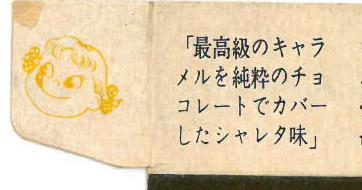 「最高級のキャラ
メルを純粋のチョ
コレートでカバー
したシャレタ味」